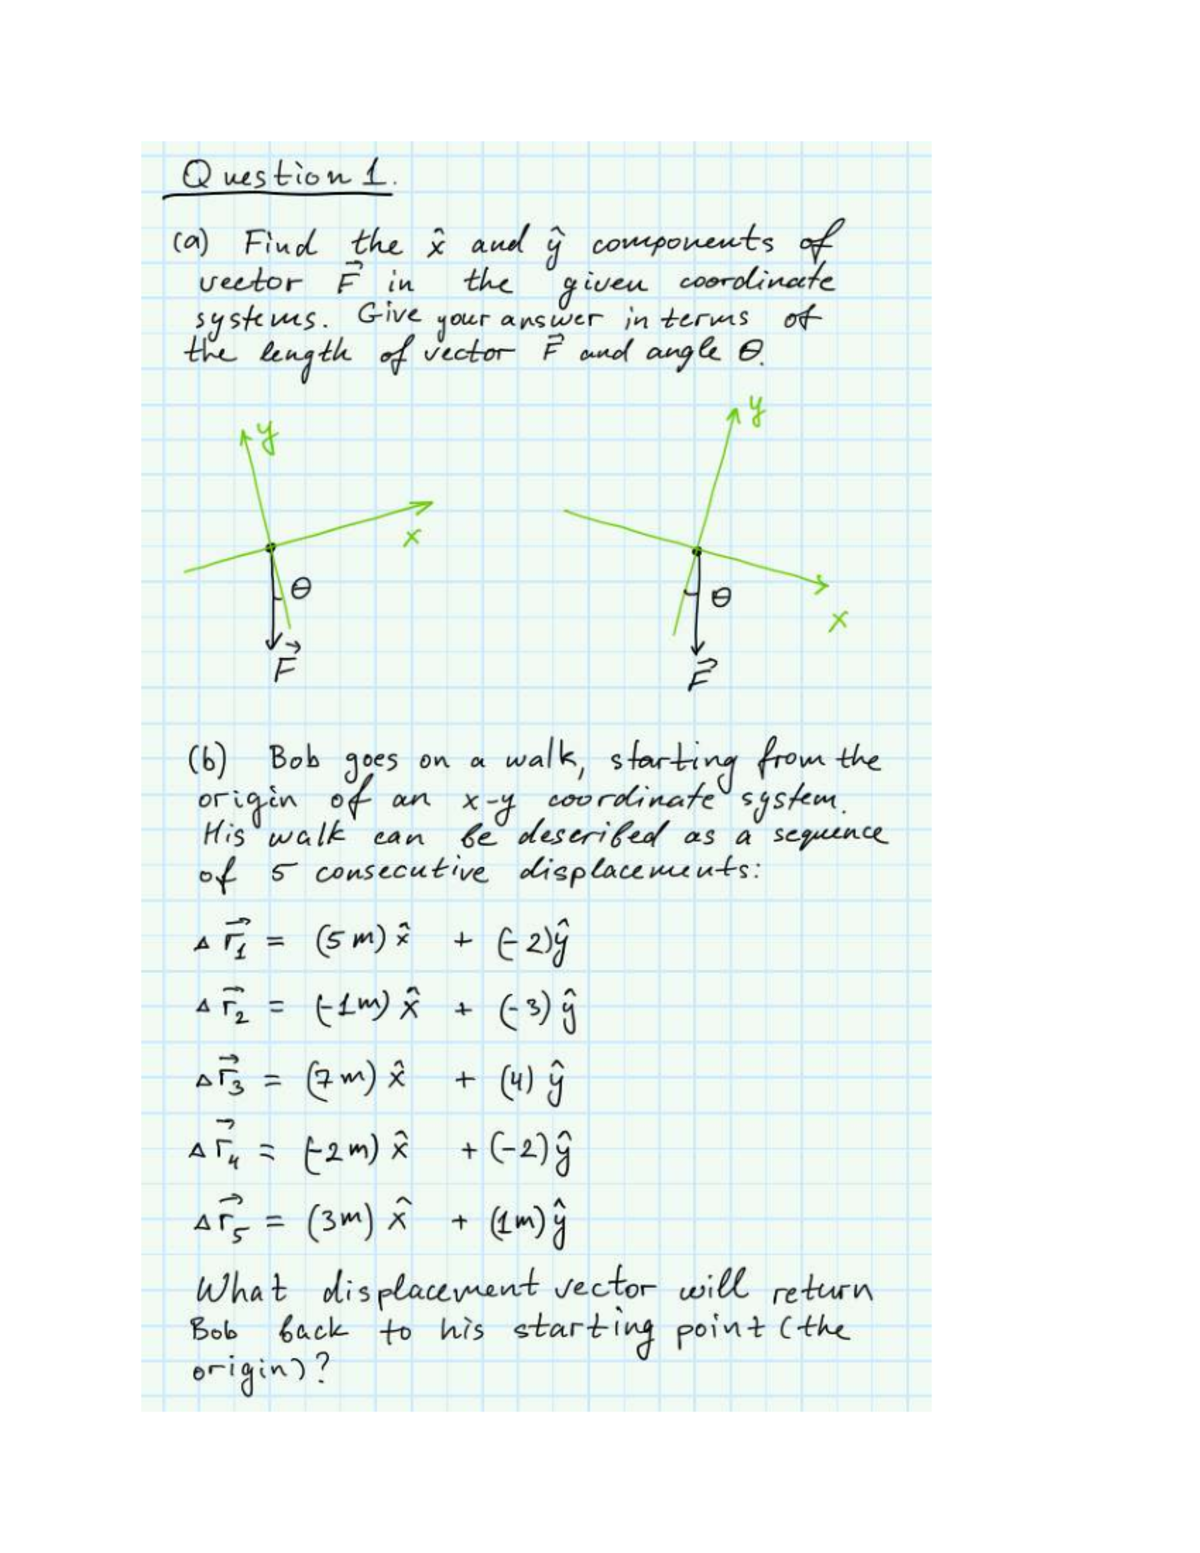 Question 1.
(a) Find the x̂ and ŷ components of
vector F⃗ in the given coordinate
systems. Give your answer in terms of
the length of vector F⃗ and angle θ.
y
x
θ
F⃗
y
x
θ
F⃗
(b) Bob goes on a walk, starting from the
origin of an x-y coordinate system.
His walk can be described as a sequence
of 5 consecutive displacements:
Δr⃗₁ = (5m) x̂ + (-2)ŷ
Δr⃗₂ = (-1m) x̂ + (-3) ŷ
Δr⃗₃ = (7m) x̂ + (4) ŷ
Δr⃗₄ = (-2m) x̂ + (-2) ŷ
Δr⃗₅ = (3m) x̂ + (1m) ŷ
What displacement vector will return
Bob back to his starting point (the
origin)?